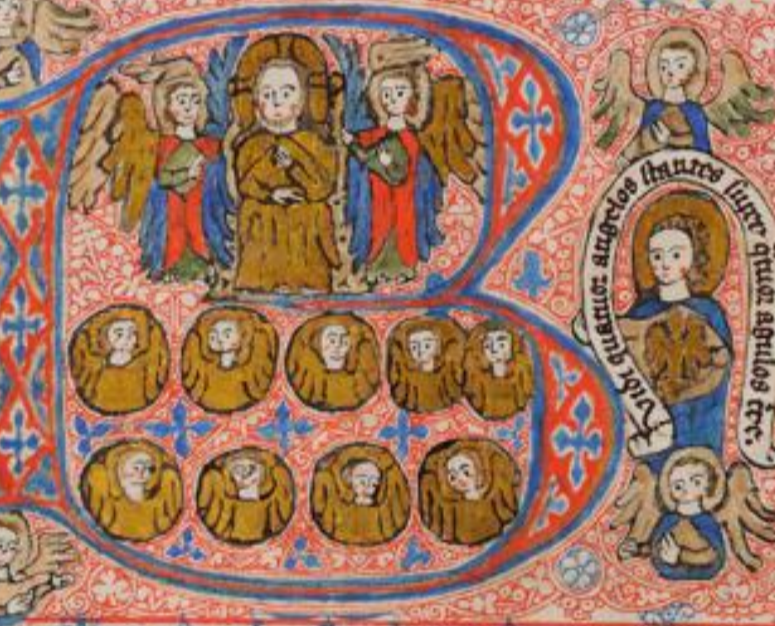 B
Vidi quatuor angelos stantes super quior agulos tre